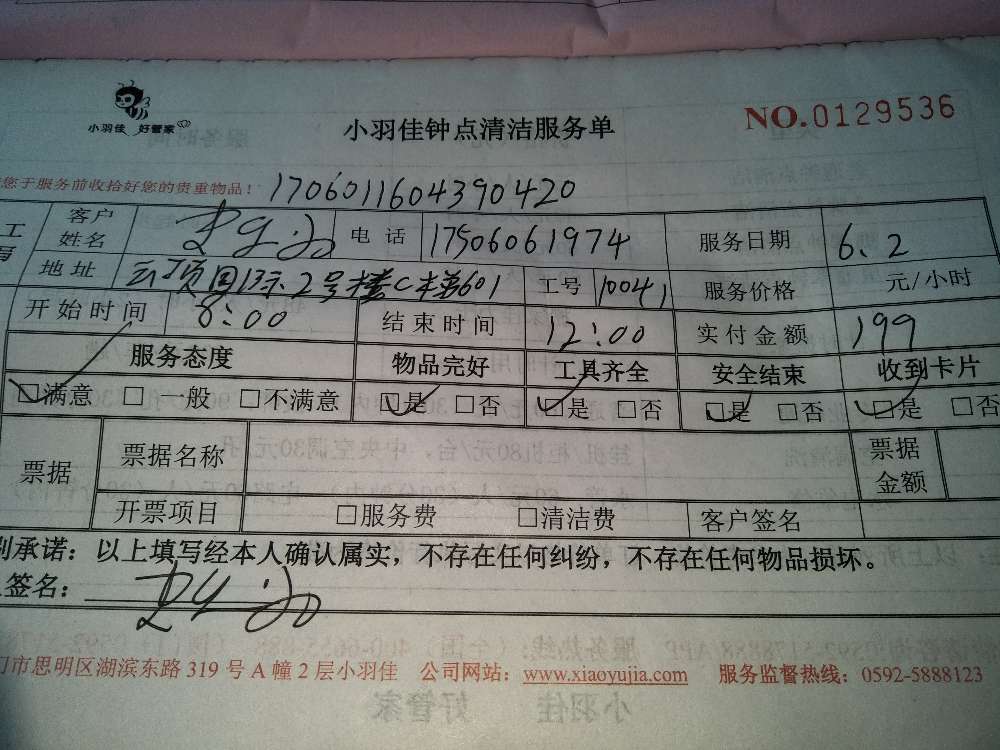 小羽佳 好管家
小羽佳钟点清洁服务单
NO.0129536
您于服务前收拾好您的贵重物品！ 1706011604390420
工 客户姓名 电话 17506061974 服务日期 6.2
地址 云顶园 2号楼C梯601 工号 10041 服务价格 元/小时
开始时间 8:00 结束时间 12:00 实付金额 199
服务态度 物品完好 工具齐全 安全结束 收到卡片
□满意 □一般 □不满意 □是 □否 □是 □否 □是 □否 □是 □否
票据 票据名称 票据金额
开票项目 □服务费 □清洁费 客户签名
别承诺：以上填写经本人确认属实，不存在任何纠纷，不存在任何物品损坏。
签名：
门市思明区湖滨东路 319 号 A 幢 2 层小羽佳 公司网站：www.xiaoyujia.com 服务监督热线：0592-5888123